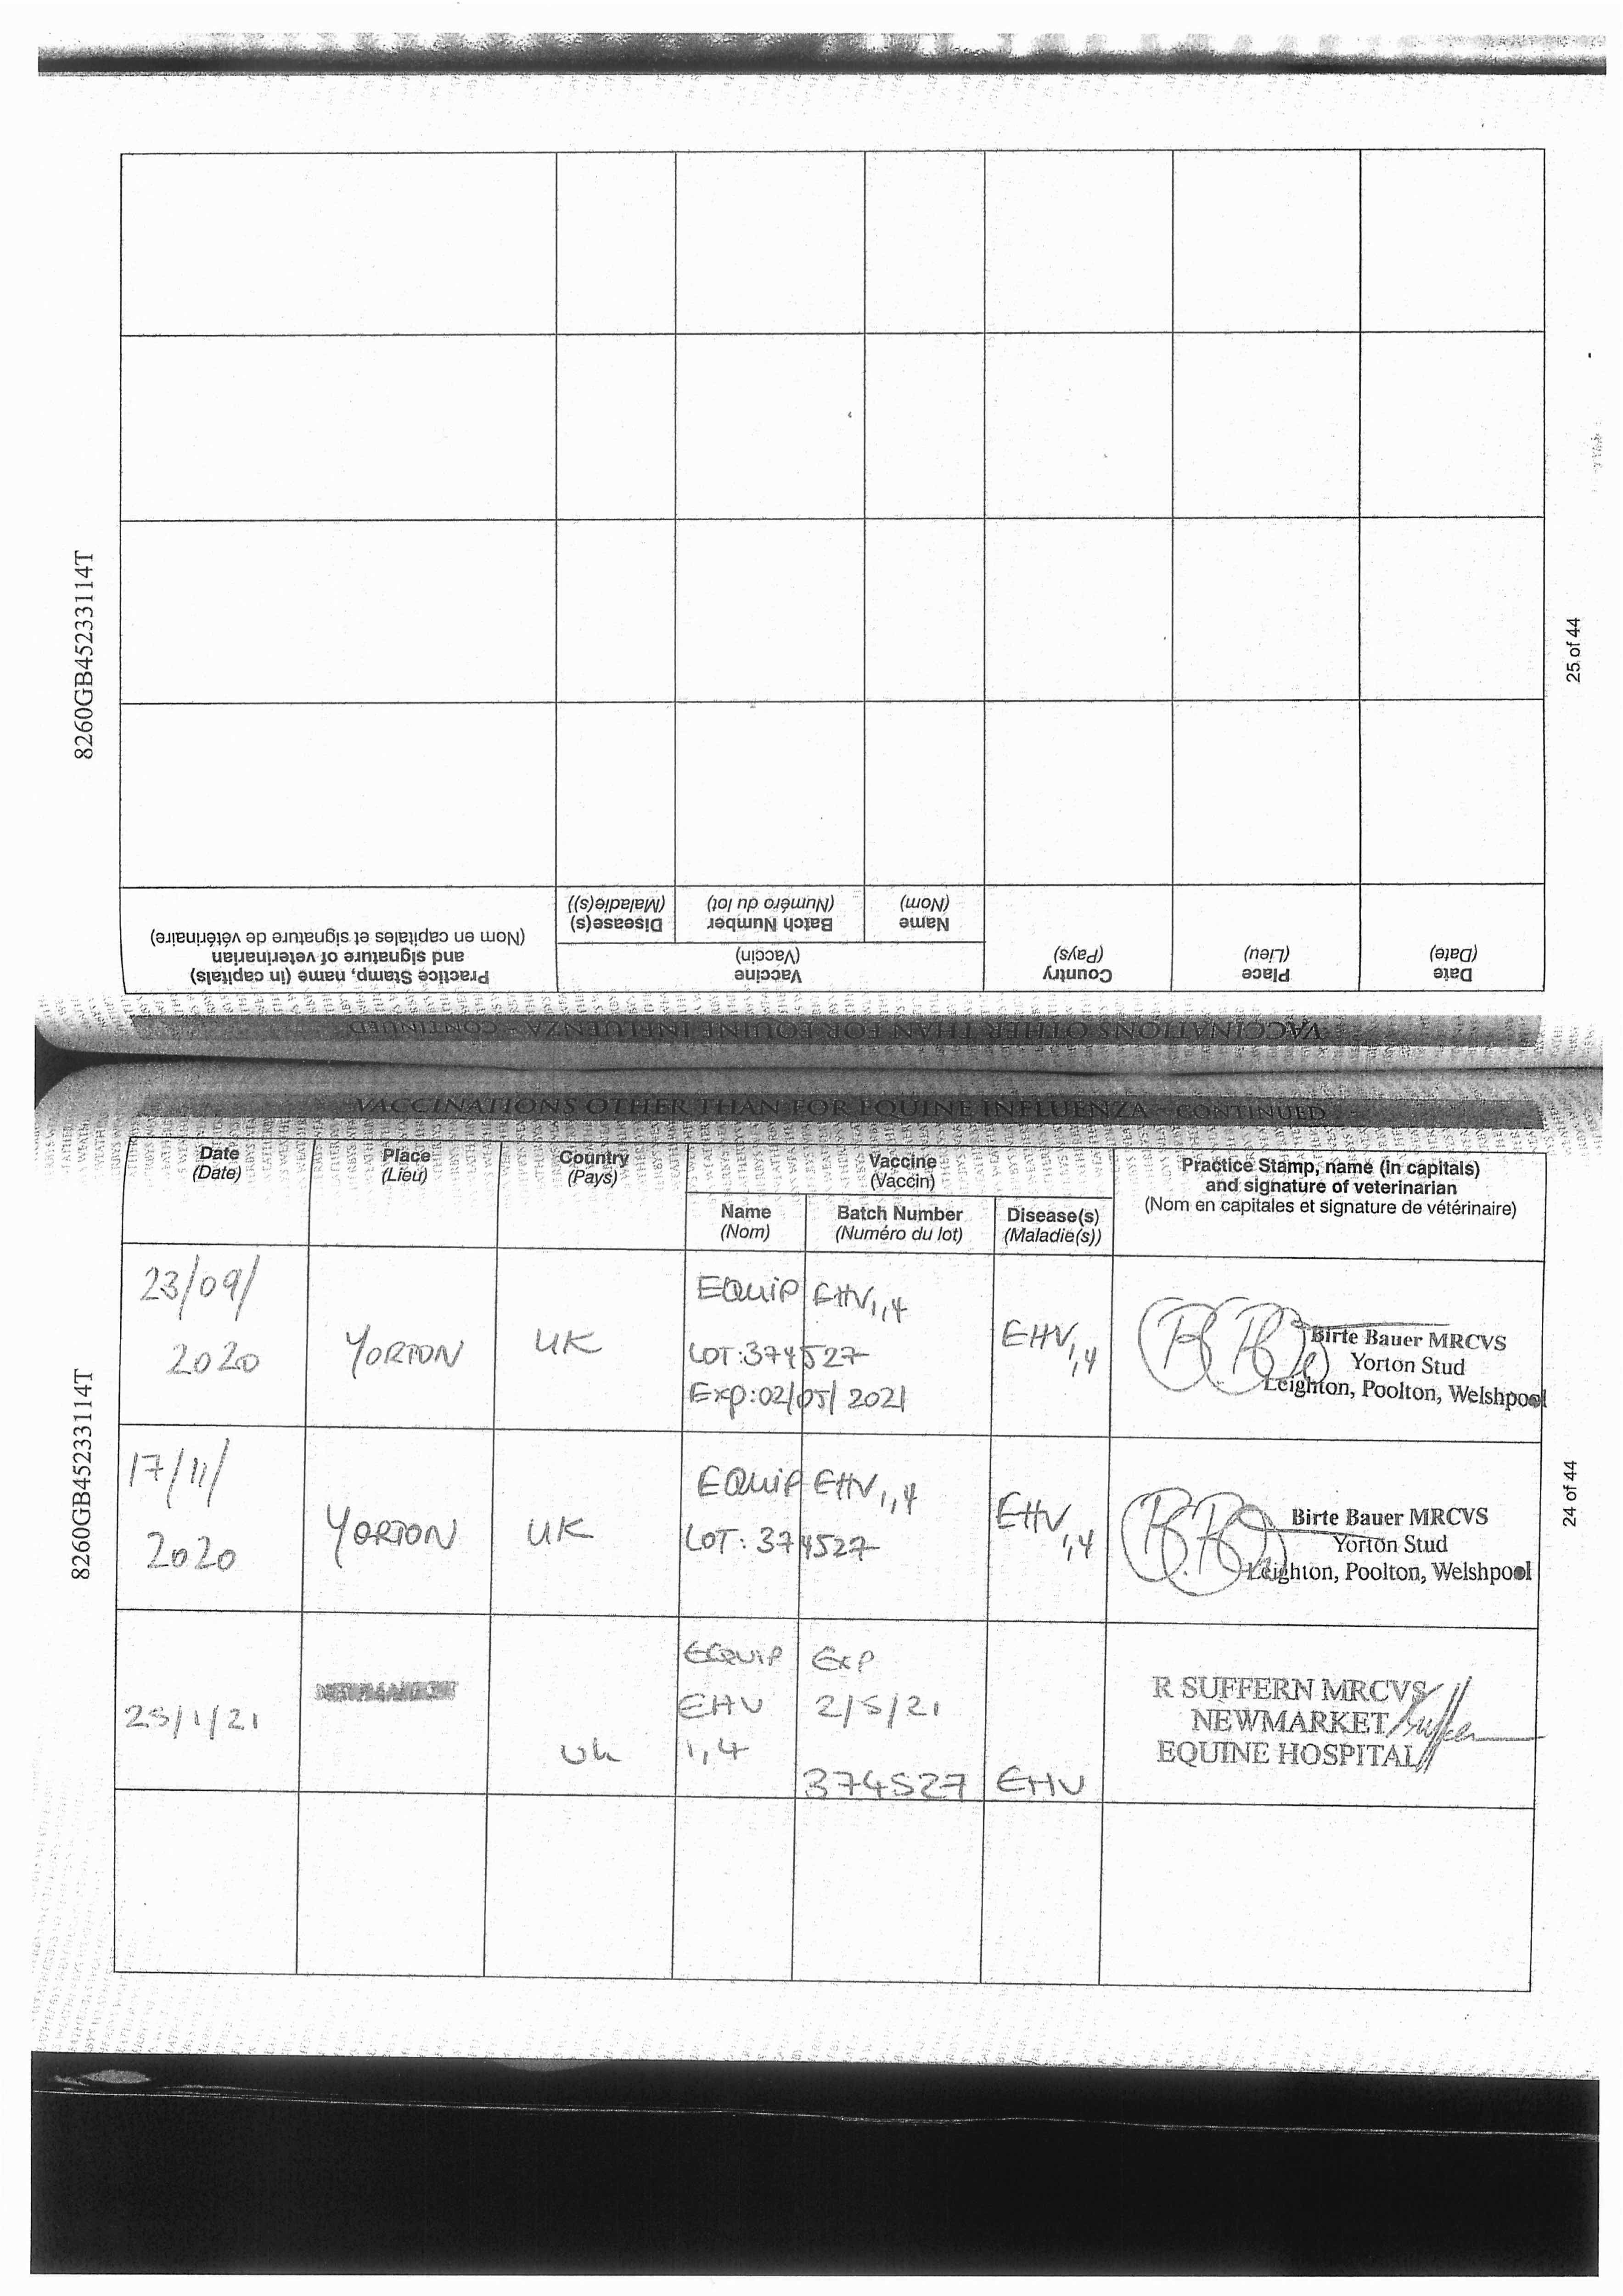 8260GB45233114T
25 of 44
VACCINATIONS OTHER THAN FOR EQUINE INFLUENZA - CONTINUED
Date
(Date)
Place
(Lieu)
Country
(Pays)
Vaccine
(Vaccin)
Name
(Nom)
Batch Number
(Numéro du lot)
Disease(s)
(Maladie(s))
Practice Stamp, name (in capitals)
and signature of veterinarian
(Nom en capitales et signature de vétérinaire)
VACCINATIONS OTHER THAN FOR EQUINE INFLUENZA - CONTINUED
8260GB45233114T
24 of 44
Date
(Date)
Place
(Lieu)
Country
(Pays)
Vaccine
(Vaccin)
Name
(Nom)
Batch Number
(Numéro du lot)
Disease(s)
(Maladie(s))
Practice Stamp, name (in capitals)
and signature of veterinarian
(Nom en capitales et signature de vétérinaire)
23/09/
2020
YORTON
UK
EQUIP EHV1,4
LOT:374527
Exp:02/05/2021
EHV1,4
Birte Bauer MRCVS
Yorton Stud
Leighton, Poolton, Welshpool
17/11/
2020
YORTON
UK
EQUIP EHV1,4
LOT: 374527
EHV1,4
Birte Bauer MRCVS
Yorton Stud
Leighton, Poolton, Welshpool
25/1/21
UK
EQUIP
EHV
1,4
Exp
2/5/21
374527
EHV
R SUFFERN MRCVS
NEWMARKET
EQUINE HOSPITAL